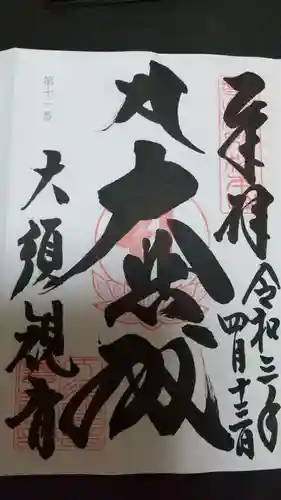 奉拝
令和三年
四月十三日
大悲殿
大須観音
第十二番